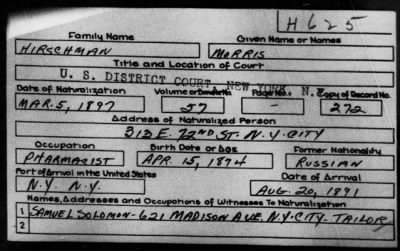 H625
Family Name Given Name or Names
HIRSCHMAN MORRIS
Title and Location of Court
U. S. DISTRICT COURT, NEW YORK, N.
Date of Naturalization Volume or Bundle No. Page No. Copy of Record No.
MAR. 5, 1897 57 - 272
Address of Naturalized Person
313 E. 72ND ST. N.Y. CITY
Occupation Birth Date or Age Former Nationality
PHARMACIST APR. 15, 1874 RUSSIAN
Port of Arrival in the United States Date of Arrival
N.Y. N.Y. AUG. 20, 1891
Names, Addresses and Occupations of Witnesses To Naturalization
1 SAMUEL SOLOMON - 621 MADISON AVE. N.Y. CITY - TAILOR
2